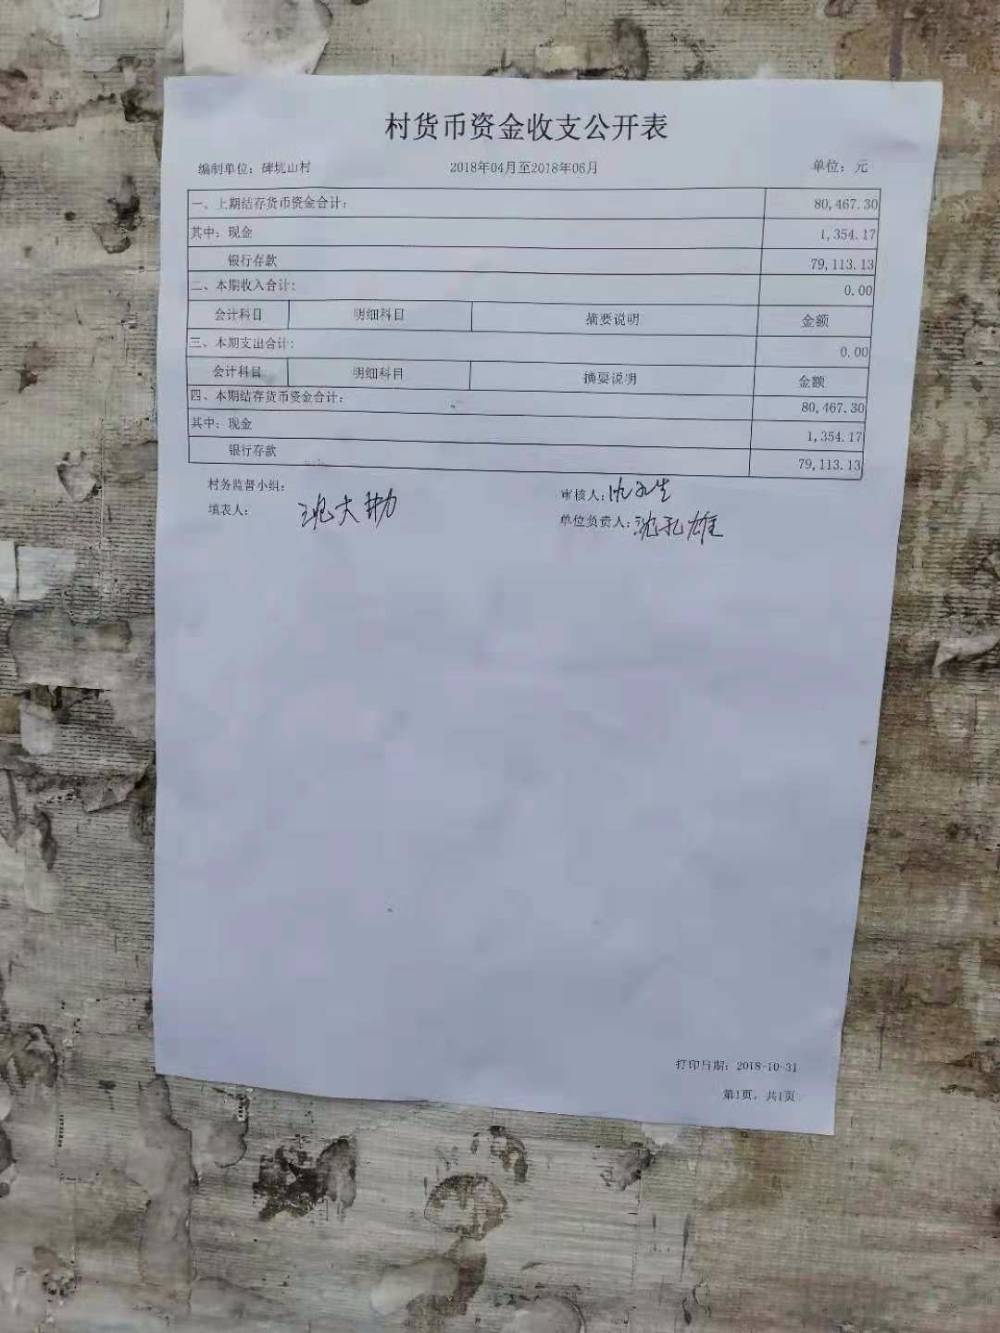 村货币资金收支公开表
编制单位：碑坑山村 2018年04月至2018年06月 单位：元
一、上期结存货币资金合计： 80,467.30
其中：现金 1,354.17
银行存款 79,113.13
二、本期收入合计： 0.00
会计科目 明细科目 摘要说明 金额
三、本期支出合计： 0.00
会计科目 明细科目 摘要说明 金额
四、本期结存货币资金合计： 80,467.30
其中：现金 1,354.17
银行存款 79,113.13
村务监督小组： 审核人：
填表人： 单位负责人：
打印日期：2018-10-31
第1页，共1页